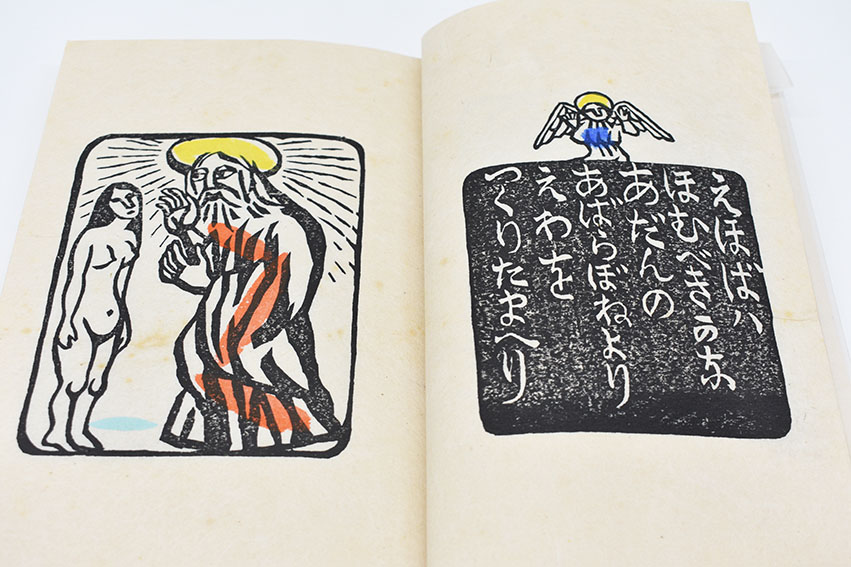 えほばハ
ほむべきかな
あだんの
あばらぼねより
えわを
つくりたまへり